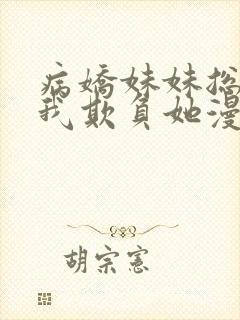 病嬌妹妹總
我欺負她漫
胡宗憲